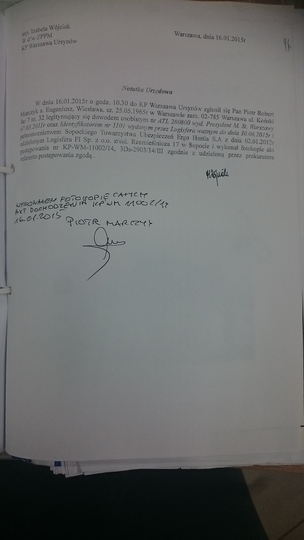 asp. Izabela Wójciuk
KP Warszawa Ursynów
Warszawa, dnia 16.01.2015r
Notatka Urzędowa
W dniu 16.01.2015r o godz. 10.30 do KP Warszawa Ursynów zgłosił się Pan Piotr Robert
Marczyk s. Eugeniusz, Wiesława, ur. 25.05.1965r w Warszawie zam. 02-785 Warszawa ul.
lar 7 m. 32 legitymujący się dowodem osobistym nr wyd. Prezydent M. St. Warszawy
oraz Identyfikatorem nr 1101 wydanym przez Logisfera ważnym do dnia 30.06.2015r i
pełnomocnictwem Sopockiego Towarzystwa Ubezpieczeń Ergo Hestia S.A z dnia 02.01.2012r
udzielonym Logisfera FI Sp. z o.o. z/s ul. Rzemieślnicza 17 w Sopocie i wykonał fotokopie akt
postępowania nr KP-WM-11002/14, 3Ds-2903/14/III zgodnie z udzieloną przez prokuratora
referenta postępowania zgodą.
WYKONAŁEM FOTOKOPIĘ CAŁYCH
AKT DOCHODZENIA KP WM 11002/14
16.01.2015
PIOTR MARCZYK